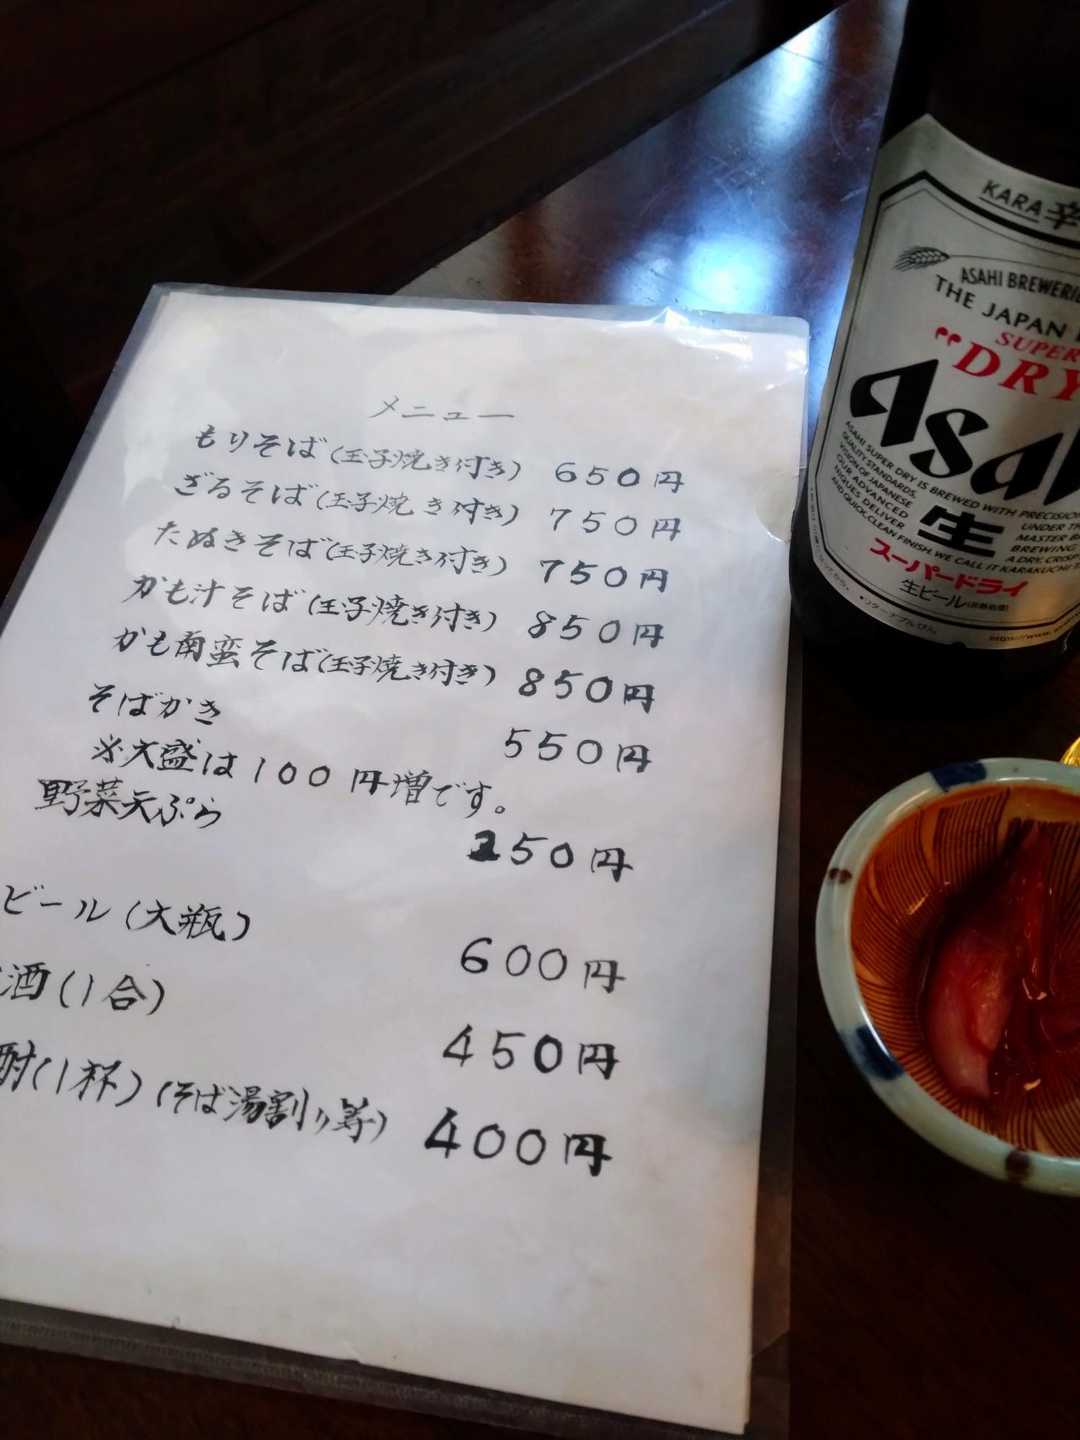 メニュー
もりそば(玉子焼き付き) 650円
ざるそば(玉子焼き付き) 750円
たぬきそば(玉子焼き付き) 750円
かも汁そば(玉子焼き付き) 850円
かも南蛮そば(玉子焼き付き) 850円
そばかき 550円
※大盛は100円増です。
野菜天ぷら 250円
ビール(大瓶) 600円
酒(1合) 450円
酎(1杯)(そば湯割り等) 400円
KARA 辛
ASAHI BREWERIE
THE JAPAN
SUPER
"DRY
Asah
ASAHI SUPER DRY IS BREWED WITH PRECISION
QUALITY STANDARDS,
VISION OF JAPANESE
OUR ADVANCED
NIQUES DELIVER
AND QUICK, CLEAN FINISH. WE CALL IT KARAKUCHI
UNDER TH
MASTER B
BREWING
A DRY, CRISP
生
スーパードライ
生ビール(非熱処理)
リターナブルびん
https://www.